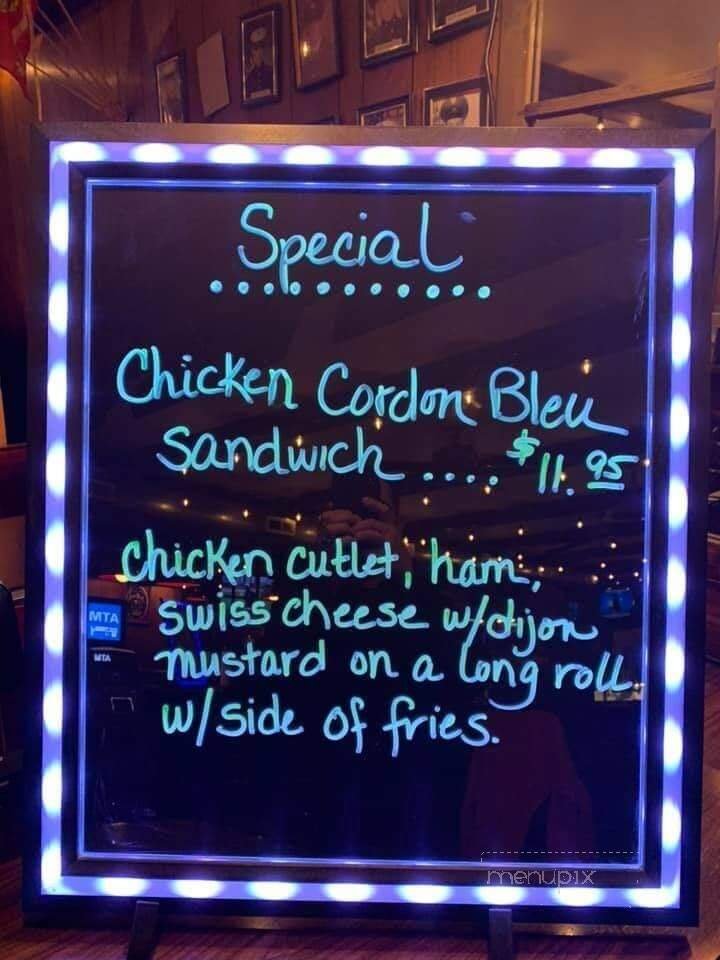 Special
Chicken Cordon Bleu
Sandwich .... $11.95
Chicken cutlet, ham,
swiss cheese w/dijon
mustard on a long roll
w/side of fries.
MTA
MTA
menupix